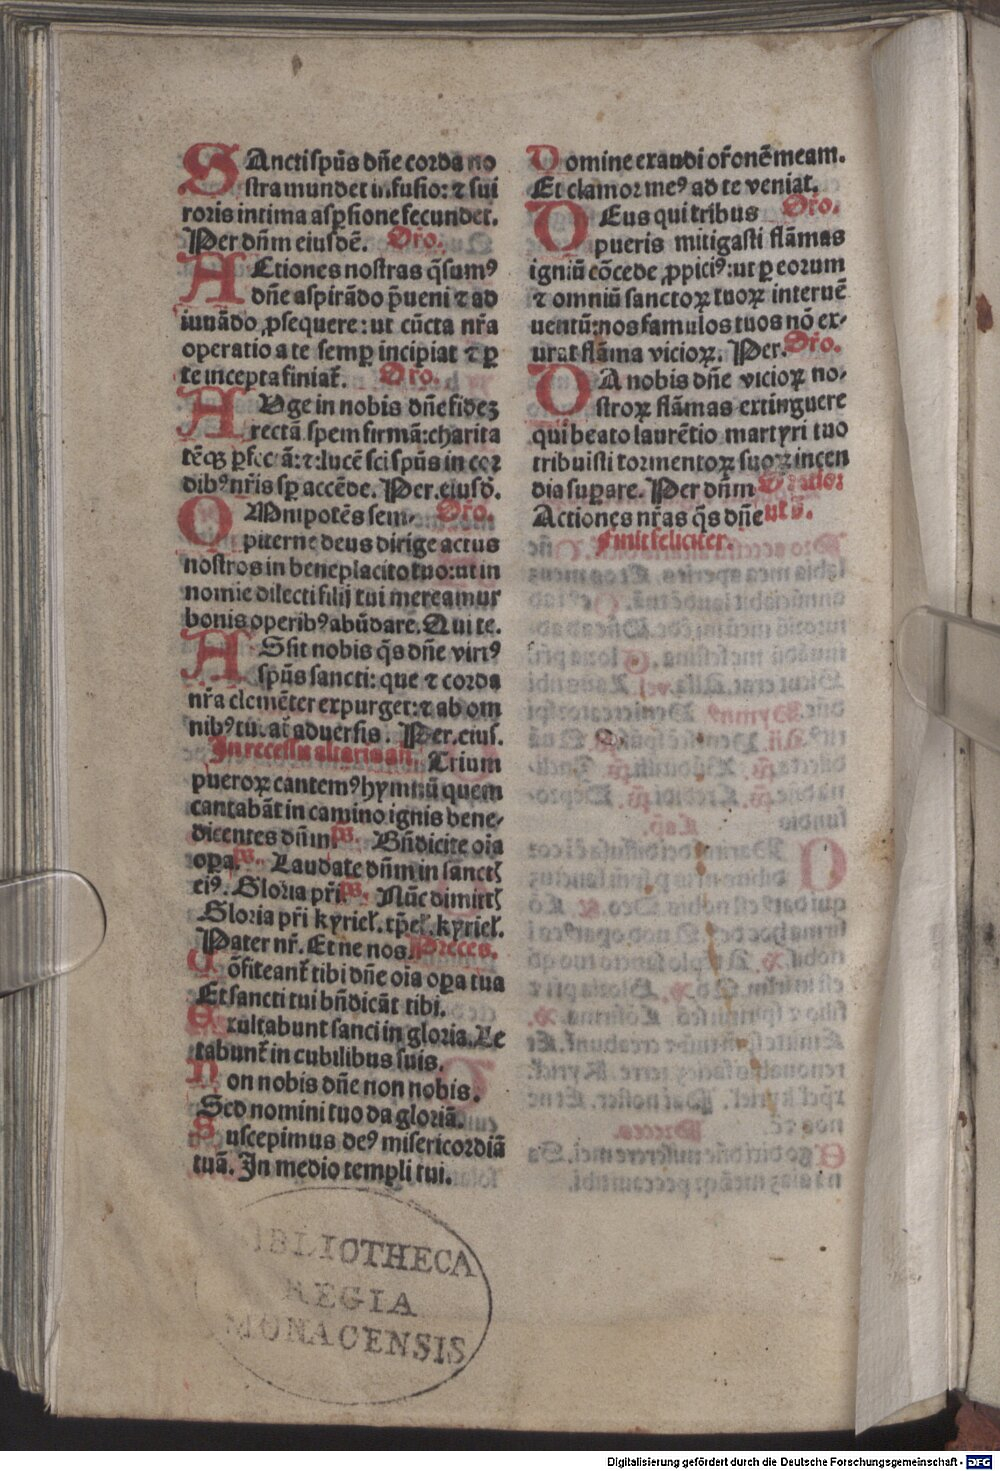 SAncti spūs dñe corda no
stra mundet infusio: ⁊ sui
roris intima aspersione fecundet.
Per dñm eiusdē. Oro.
ACtiones nostras q̄sumꝰ
dñe aspirādo p̄ueni ⁊ ad
iuuādo ꝓsequere: ut cūcta nr̄a
operatio a te semꝑ incipiat ⁊ ꝑ
te incepta finiat᷑. Oro.
AUge in nobis dñe fidez
rectā spem firmā: charita
tēqꝫ ꝑfectā: ⁊ lucē sci spūs in cor
dibꝰ nr̄is sꝑ accēde. Per. eiusd̄.
OMnipotēs sem- Oro.
piterne deus dirige actus
nostros in beneplacito tuo: ut in
nomīe dilecti filij tui mereamur
bonis operibꝰ abūdare. Qui te.
ASsit nobis q̄s dñe virtꝰ
spūs sancti: que ⁊ corda
nr̄a clemēter expurget: ⁊ ab om
nibꝰ tu. at᷑ aduersis. Per. eius.
In recessu altaris añ. Trium
pueroꝝ cantemꝰ hymnū quem
cantabāt in camino ignis bene-
dicentes dñm ps. Bn̄dicite oīa
oꝑa. ps. Laudate dñm in sanctꝭ
eiꝰ. Gloria pr̄i. ps. Nūc dimittꝭ
Gloria pr̄i kyriel̄. xp̄el̄. kyriel̄.
Pater nr̄. Et ne nos. Preces.
Cōfiteant᷑ tibi dñe oīa oꝑa tua
Et sancti tui bn̄dicāt tibi.
Exultabunt sancti in gloria. Le
tabunt᷑ in cubilibus suis.
Non nobis dñe non nobis.
Sed nomini tuo da gloriā.
Suscepimus deꝰ misericordiā
tuā. In medio templi tui.
Domine exaudi or̄onē meam.
Et clamor meꝰ ad te veniat.
DEus qui tribus Oro.
pueris mitigasti flāmas
igniū cōcede ꝓpiciꝰ: ut ꝑ eorum
⁊ omniū sanctoꝝ tuoꝝ interuē
uentū: nos famulos tuos nō ex-
urat flāma vicioꝝ. Per. Oro.
DA nobis dñe vicioꝝ no-
stroꝝ flāmas extinguere
qui beato laurētio martyri tuo
tribuisti tormentoꝝ suoꝝ incen
dia suꝑare. Per dñm
Actiones nr̄as q̄s dñe ut s̄.
Finit feliciter.
BIBLIOTHECA
REGIA
MONACENSIS
Digitalisierung gefördert durch die Deutsche Forschungsgemeinschaft - DFG